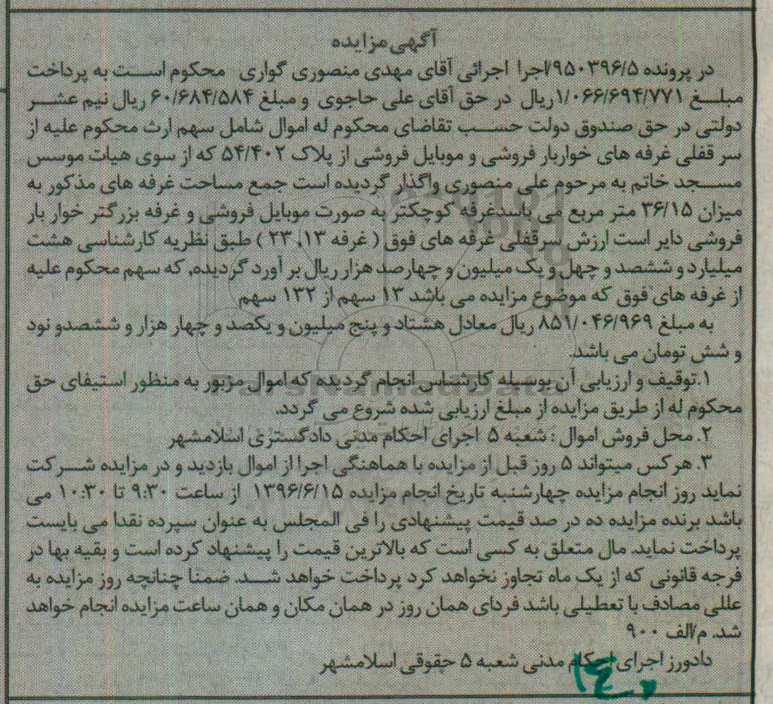 آگهی مزایده
در پرونده ۹۵۰۳۹۶/۵/اجرا اجرائی آقای مهدی منصوری گواری محکوم است به پرداخت
مبلغ ۱/۰۶۶/۶۹۴/۷۷۱ ریال در حق آقای علی حاجوی و مبلغ ۶۰/۶۸۴/۵۸۴ ریال نیم عشر
دولتی در حق صندوق دولت حسب تقاضای محکوم له اموال شامل سهم ارث محکوم علیه از
سر قفلی غرفه های خواربار فروشی و موبایل فروشی از پلاک ۵۴/۴۰۲ که از سوی هیات موسس
مسجد خاتم به مرحوم علی منصوری واگذار گردیده است جمع مساحت غرفه های مذکور به
میزان ۳۶/۱۵ متر مربع می باسدغرفه کوچکتر به صورت موبایل فروشی و غرفه بزرگتر خوار بار
فروشی دایر است ارزش سرقفلی غرفه های فوق ( غرفه ۱۳، ۲۳ ) طبق نظریه کارشناسی هشت
میلیارد و ششصد و چهل و یک میلیون و چهارصد هزار ریال بر آورد گردیده، که سهم محکوم علیه
از غرفه های فوق که موضوع مزایده می باشد ۱۳ سهم از ۱۳۲ سهم
به مبلغ ۸۵۱/۰۴۶/۹۶۹ ریال معادل هشتاد و پنج میلیون و یکصد و چهار هزار و ششصدو نود
و شش تومان می باشد.
۱.توقیف و ارزیابی آن بوسیله کارشناس انجام گردیده که اموال مزبور به منظور استیفای حق
محکوم له از طریق مزایده از مبلغ ارزیابی شده شروع می گردد.
۲. محل فروش اموال : شعبه ۵ اجرای احکام مدنی دادگستری اسلامشهر
۳. هر کس میتواند ۵ روز قبل از مزایده با هماهنگی اجرا از اموال بازدید و در مزایده شرکت
نماید روز انجام مزایده چهارشنبه تاریخ انجام مزایده ۱۳۹۶/۶/۱۵ از ساعت ۹:۳۰ تا ۱۰:۳۰ می
باشد برنده مزایده ده در صد قیمت پیشنهادی را فی المجلس به عنوان سپرده نقدا می بایست
پرداخت نماید. مال متعلق به کسی است که بالاترین قیمت را پیشنهاد کرده است و بقیه بها در
فرجه قانونی که از یک ماه تجاوز نخواهد کرد پرداخت خواهد شد. ضمنا چنانچه روز مزایده به
عللی مصادف با تعطیلی باشد فردای همان روز در همان مکان و همان ساعت مزایده انجام خواهد
شد. م/الف ۹۰۰
دادورز اجرای احکام مدنی شعبه ۵ حقوقی اسلامشهر
ParsNamadData